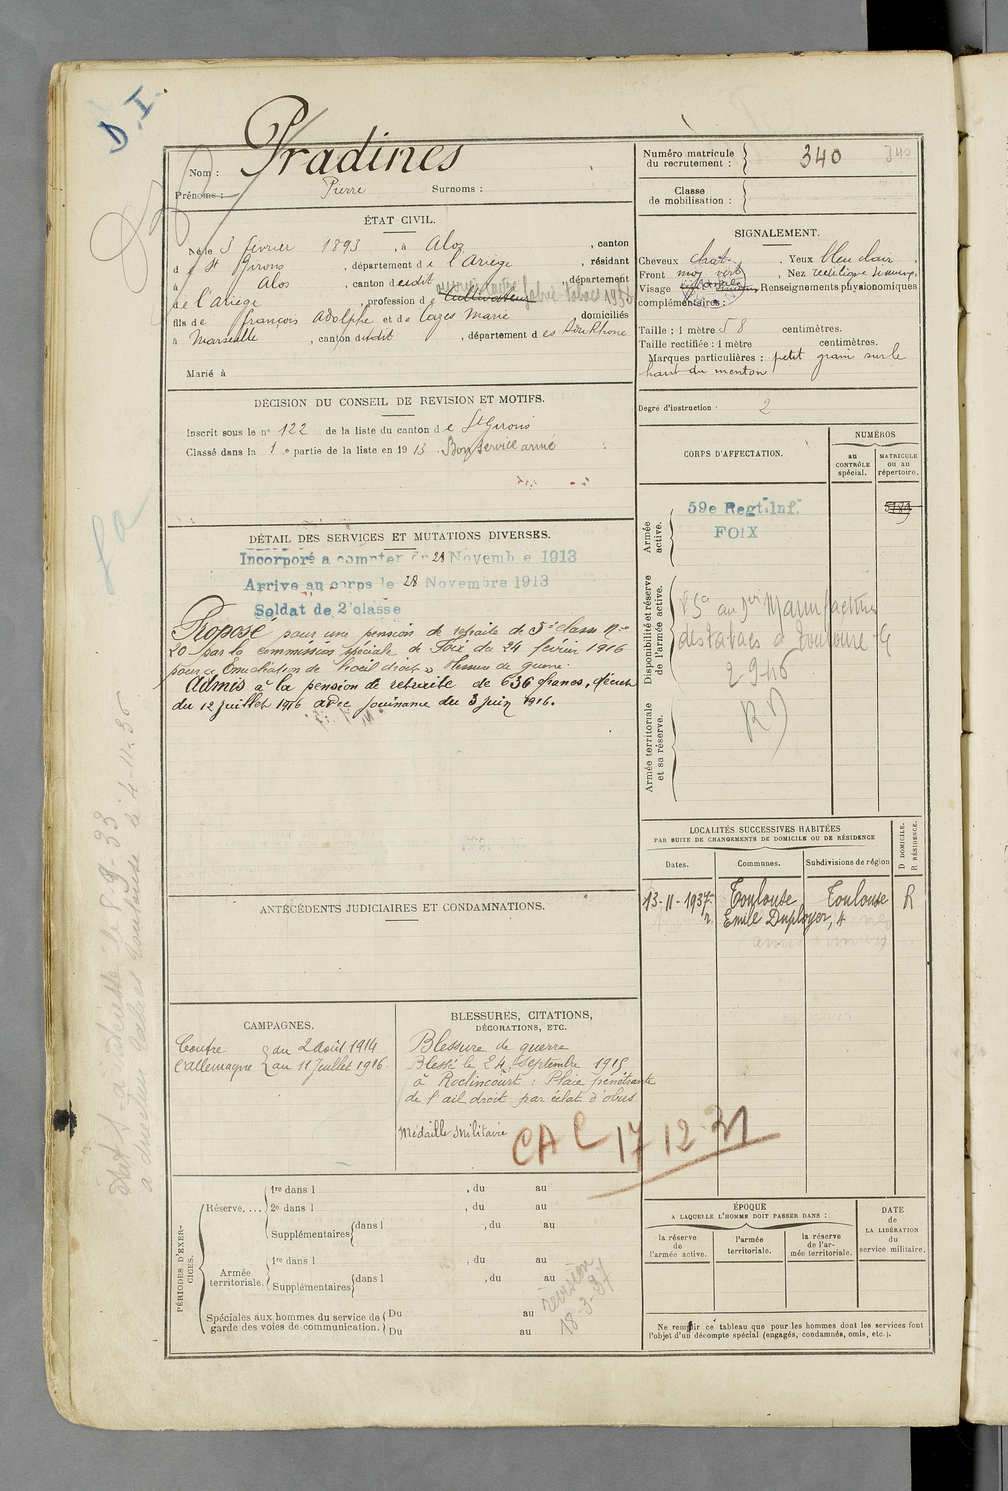 D.I.
Nom : Pradines
Prénoms : Pierre Surnoms :
ÉTAT CIVIL.
Né le 3 février 1893, à Alos, canton
de St Girons, département de l'Ariège, résidant
à Alos, canton dudit, département
de l'Ariège, profession de cultivateur
fils de François Adolphe et de Cazes Marie, domiciliés
à Marseille, canton dudit, département des Bou Rhone
Marié à
DÉCISION DU CONSEIL DE REVISION ET MOTIFS.
Inscrit sous le n° 122 de la liste du canton de St Girons
Classé dans la 1 e partie de la liste en 1913. Bon service armé
DÉTAIL DES SERVICES ET MUTATIONS DIVERSES.
Incorporé a compter du 28 Novembre 1913
Arrive au corps le 28 Novembre 1913
Soldat de 2e classe
Proposé pour une pension de retraite de 5e classe No
20 par la commission spéciale de Foix du 24 février 1916
pour « Enucléation de l'oeil droit » blessure de guerre.
Admis à la pension de retraite de 636 francs, décret
du 12 juillet 1916 avec jouissance du 3 juin 1916.
ANTÉCÉDENTS JUDICIAIRES ET CONDAMNATIONS.
CAMPAGNES.
Contre du 2 août 1914
l'Allemagne au 11 Juillet 1916.
BLESSURES, CITATIONS,
DÉCORATIONS, ETC.
Blessure de guerre
Blessé le 24 Septembre 1915
à Roclincourt : Plaie pénétrante
de l'œil droit par éclat d'obus
Médaille Militaire
CAC 17 12 31
PÉRIODES D'EXER-
CICES.
Réserve....
1re dans l , du au
2e dans l , du au
Supplémentaires dans l , du au
Armée
territoriale.
1re dans l , du au
Supplémentaires dans l , du au
Spéciales aux hommes du service de
garde des voies de communication.
Du au
Du au
révision
18-3-37
Numéro matricule
du recrutement : 340 340
Classe
de mobilisation :
SIGNALEMENT.
Cheveux chat. Yeux bleu clair
Front moy vert, Nez rectiligne
Visage , Renseignements physionomiques
complémentaires :
Taille : 1 mètre 58 centimètres.
Taille rectifiée : 1 mètre centimètres.
Marques particulières : petit grain sur le
haut du menton
Degré d'instruction : 2
CORPS D'AFFECTATION.
NUMÉROS
au
CONTRÔLE
spécial.
MATRICULE
ou au
répertoire.
Armée
active.
59e Regt. Inf.
FOIX
Disponibilité et réserve
de l'armée active.
Manufacture
des tabacs d Toulouse
2-9-46
Armée territoriale
et sa réserve.
LOCALITÉS SUCCESSIVES HABITÉES
PAR SUITE DE CHANGEMENTS DE DOMICILE OU DE RÉSIDENCE
D DOMICILE.
R RÉSIDENCE.
Dates. Communes. Subdivisions de région
13-11-1937 Toulouse Toulouse R
r. Emile Duployer, 4
ÉPOQUE
A LAQUELLE L'HOMME DOIT PASSER DANS :
la réserve
de
l'armée active.
l'armée
territoriale.
la réserve
de l'ar-
mée territoriale.
DATE
de
LA LIBÉRATION
du
service militaire.
Ne remplir ce tableau que pour les hommes dont les services font
l'objet d'un décompte spécial (engagés, condamnés, omis, etc.).